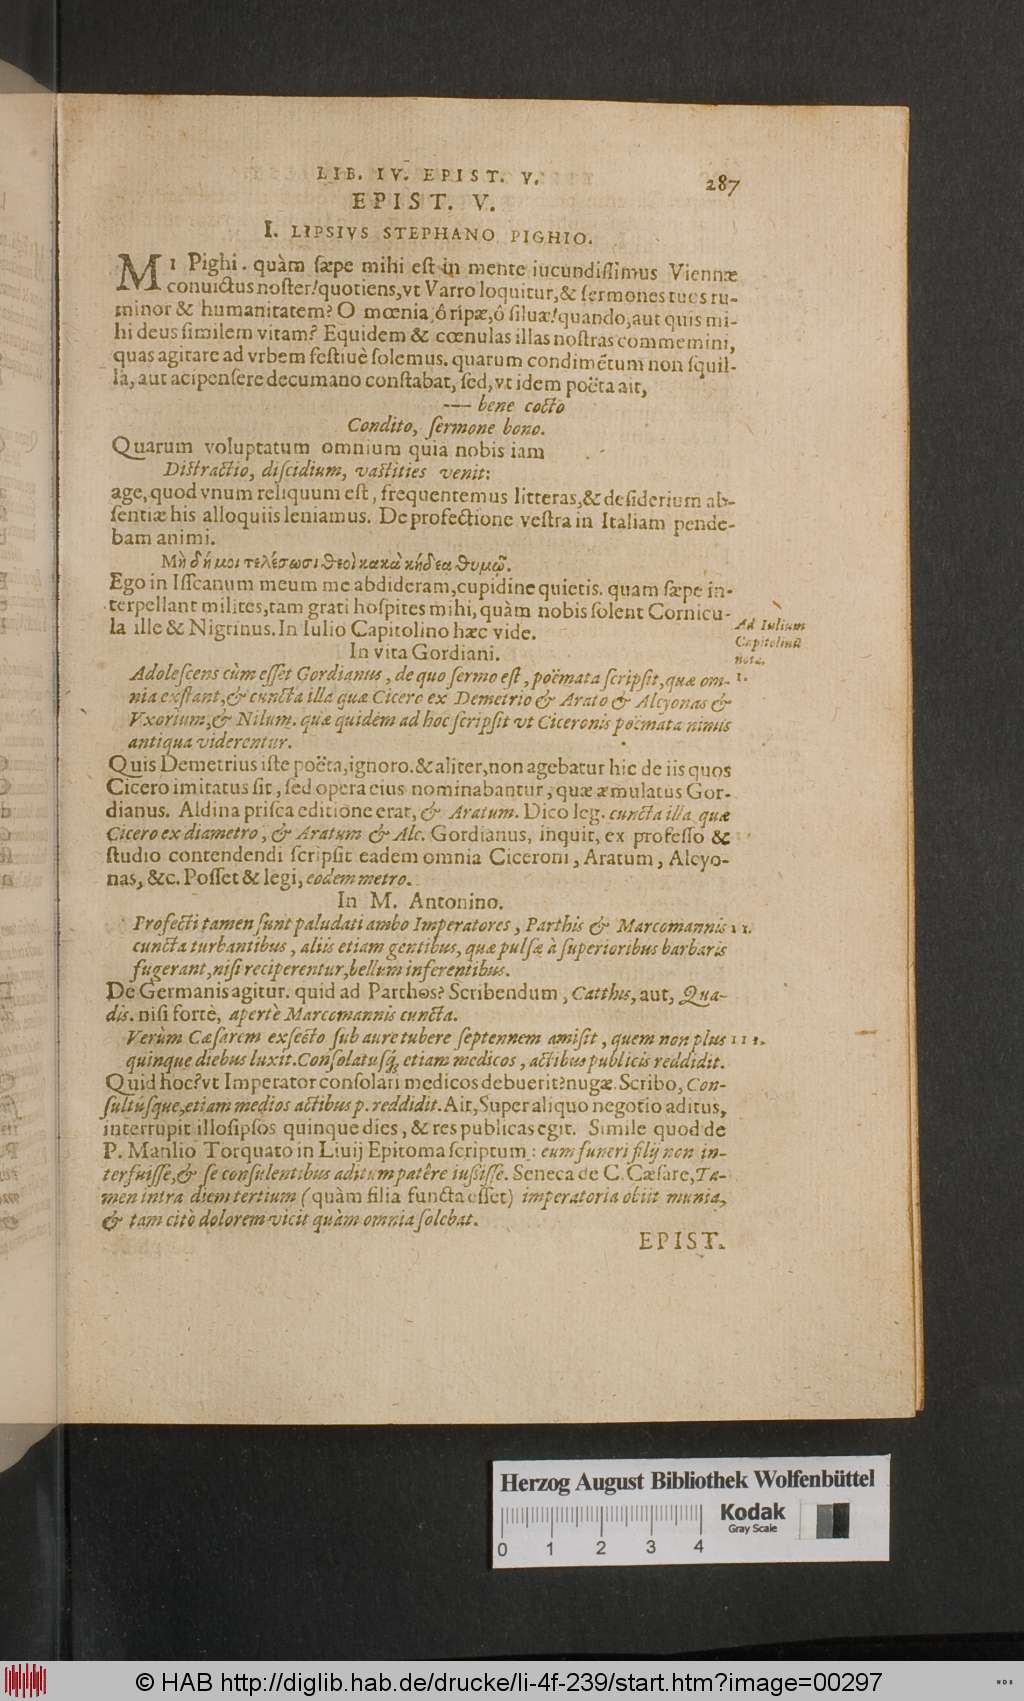 LIB. IV. EPIST. V.
287
EPIST. V.
I. LIPSIVS STEPHANO PIGHIO.
MI Pighi. quàm sæpe mihi est in mente iucundissimus Viennæ
conuictus noster! quotiens, vt Varro loquitur, & sermones tuos ru-
minor & humanitatem? O mœnia, ô ripæ, ô siluæ! quando, aut quis mi-
hi deus similem vitam? Equidem & cœnulas illas nostras commemini,
quas agitare ad vrbem festiuè solemus. quarum condimētum non squil-
la, aut acipensere decumano constabat, sed, vt idem poëta ait,
— bene cocto
Condito, sermone bono.
Quarum voluptatum omnium quia nobis iam
Distractio, discidium, vastities venit:
age, quod vnum reliquum est, frequentemus litteras, & desiderium ab-
sentiæ his alloquiis leniamus. De profectione vestra in Italiam pende-
bam animi.
Μὴ δή μοι τελέσωσι θεοὶ κακὰ κήδεα θυμῷ.
Ego in Isscanum meum me abdideram, cupidine quietis. quam sæpe in-
terpellant milites, tam grati hospites mihi, quàm nobis solent Cornicu-
la ille & Nigrinus. In Iulio Capitolino hæc vide.
Ad Iulium
Capitolinū
notæ.
In vita Gordiani.
Adolescens cùm esset Gordianus, de quo sermo est, poëmata scripsit, quæ om-
I.
nia exstant, & cuncta illa quæ Cicero ex Demetrio & Arato & Alcyonas &
Vxorium, & Nilum. quæ quidem ad hoc scripsit vt Ciceronis poëmata nimis
antiqua viderentur.
Quis Demetrius iste poëta, ignoro. & aliter, non agebatur hic de iis quos
Cicero imitatus sit, sed opera eius nominabantur, quæ æmulatus Gor-
dianus. Aldina prisca editione erat, & Aratum. Dico leg. cuncta illa quæ
Cicero ex diametro, & Aratum & Alc. Gordianus, inquit, ex professo &
studio contendendi scripsit eadem omnia Ciceroni, Aratum, Alcyo-
nas, &c. Posset & legi, eodem metro.
In M. Antonino.
Profecti tamen sunt paludati ambo Imperatores, Parthis & Marcomannis
II.
cuncta turbantibus, aliis etiam gentibus, quæ pulsæ à superioribus barbaris
fugerant, nisi reciperentur, bellum inferentibus.
De Germanis agitur. quid ad Parthos? Scribendum, Catthis, aut, Qua-
dis. nisi fortè, apertè Marcomannis cuncta.
Verùm Cæsarem exsecto sub aure tubere septennem amisit, quem non plus
III.
quinque diebus luxit. Consolatusq́; etiam medicos, actibus publicis reddidit.
Quid hoc? vt Imperator consolari medicos debuerit? nugæ. Scribo, Con-
sultúsque, etiam medios actibus p. reddidit. Ait, Super aliquo negotio aditus,
interrupit illos ipsos quinque dies, & res publicas egit. Simile quod de
P. Manlio Torquato in Liuij Epitoma scriptum: eum funeri filij non in-
terfuisse, & se consulentibus aditum patêre iussisse. Seneca de C. Cæsare, Ta-
men intra diem tertium (quàm filia functa esset) imperatoria obiit munia,
& tam citò dolorem vicit quàm omnia solebat.
EPIST.
Herzog August Bibliothek Wolfenbüttel
Kodak
Gray Scale
0 1 2 3 4
© HAB http://diglib.hab.de/drucke/li-4f-239/start.htm?image=00297